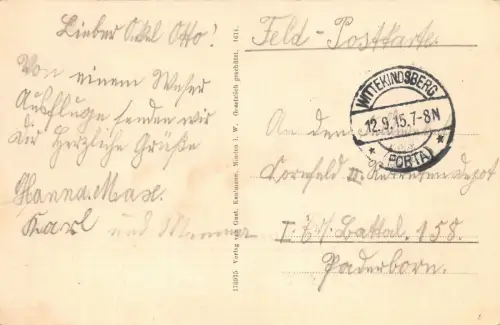 Lieber Onkel Otto!
Von einem Weser
Ausfluge senden wir
dir Herzliche Grüße
Hanna. Max.
Karl und Mamma
176975 Verlag von Gust. Kaufmann, Minden i. W. Gesetzlich geschützt. 1614.
Feld-Postkarte.
WITTEKINDSBERG
12.9.15.7-8N
* (PORTA) *
An den
Cornfeld II. Rekrutendepot
I. E./I. Battal. 158.
Paderborn.